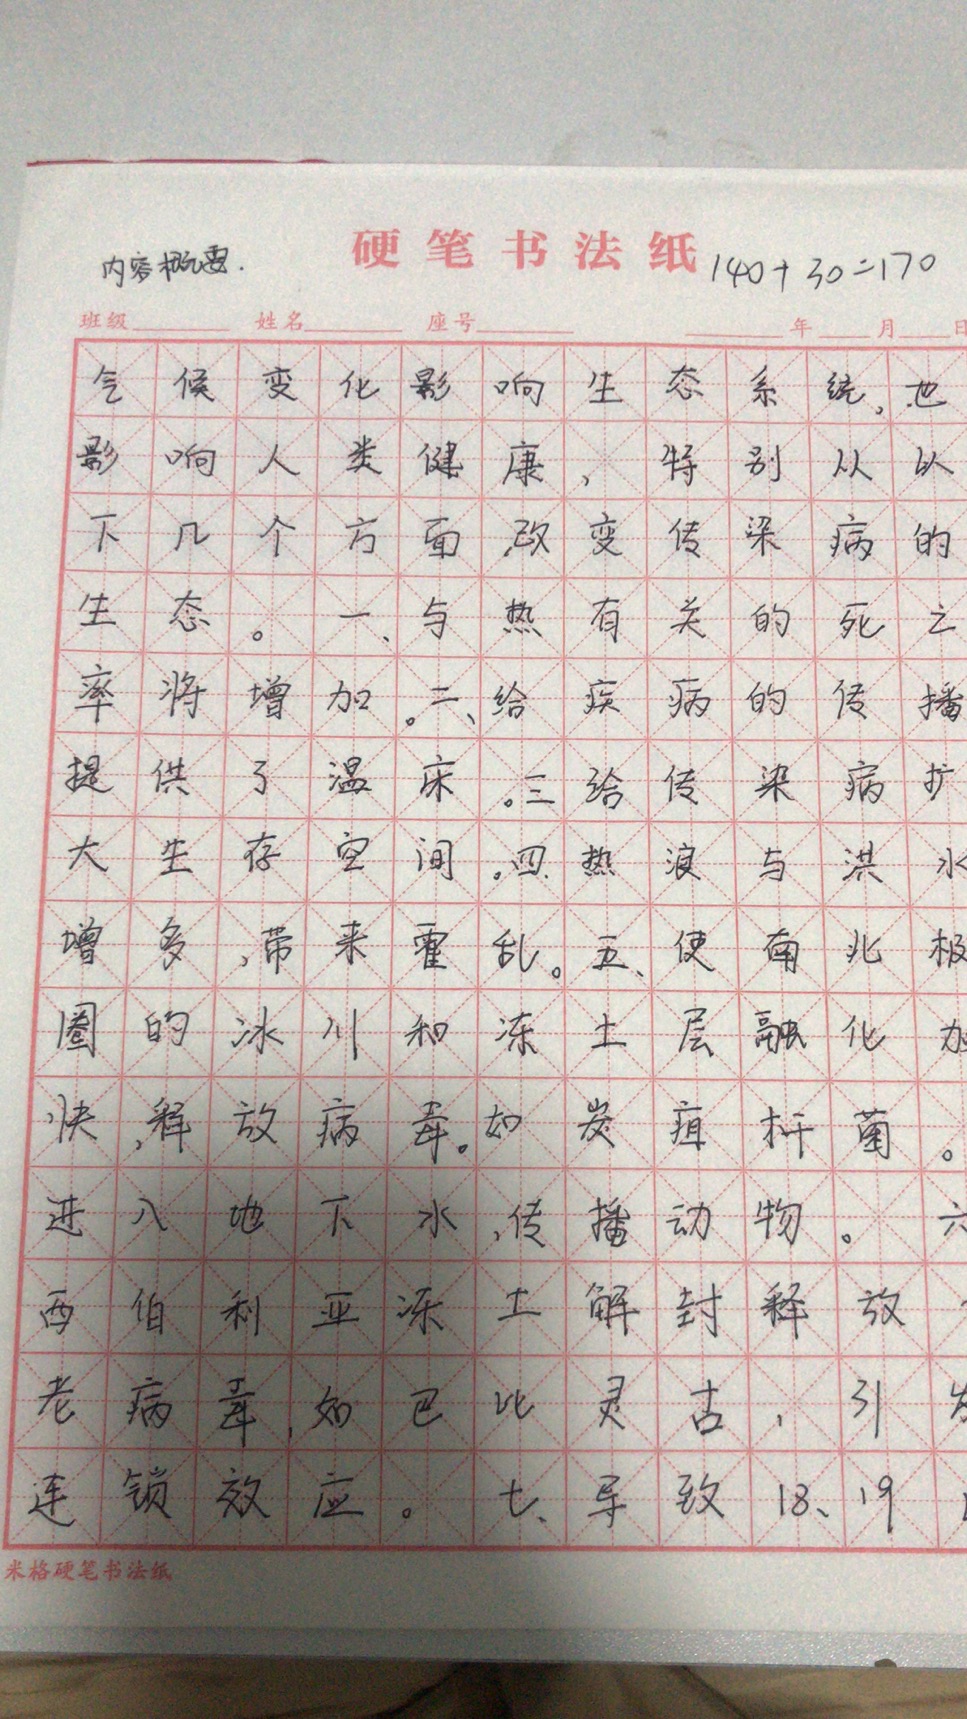 硬笔书法纸
内容概要.
140+30=170
班级 姓名 座号 年 月 日
气候变化影响生态系统,也
影响人类健康,特别从以
下几个方面,改变传染病的
生态。一、与热有关的死亡
率将增加。二、给疾病的传播
提供了温床。三给传染病扩
大生存空间。四、热浪与洪水
增多,带来霍乱。五、使南北极
圈的冰川和冻土层融化加
快,释放病毒。如炭疽杆菌。
进入地下水,传播动物。六
西伯利亚冻土解封释放
老病毒,如巴比灵古,引发
连锁效应。七、导致18、19
米格硬笔书法纸